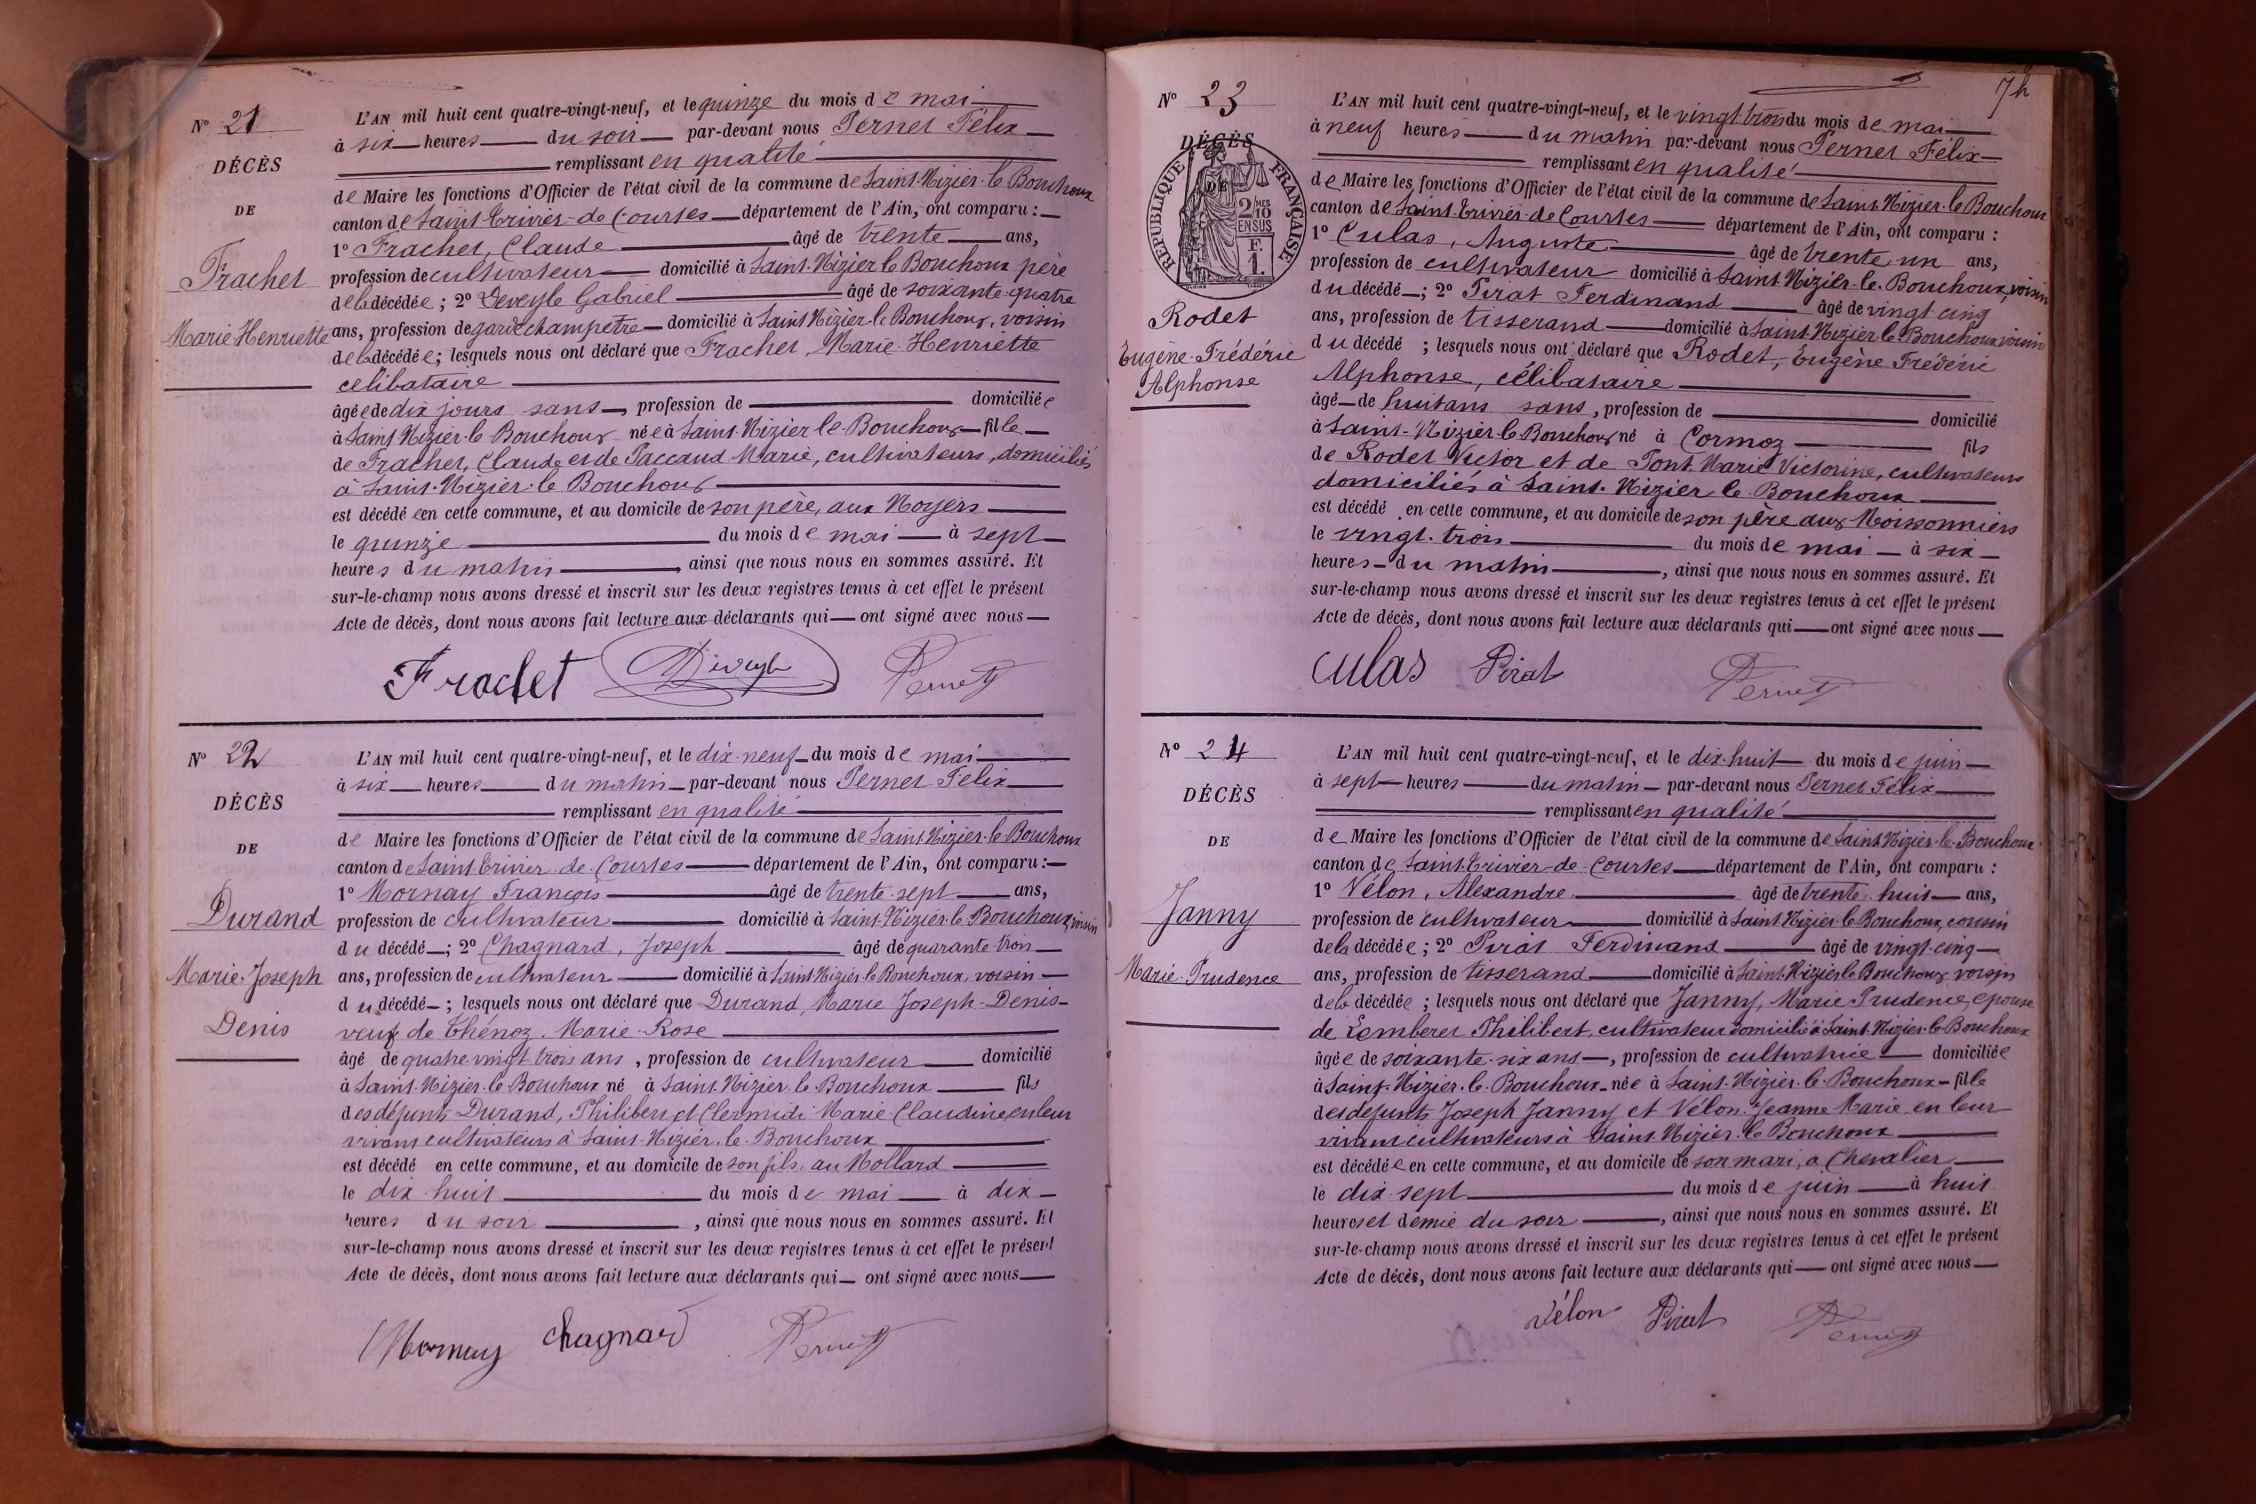 Nº 21
DÉCÈS
DE
Frachet
Marie Henriette
L'AN mil huit cent quatre-vingt-neuf, et le quinze du mois de mai
à six heures du soir par-devant nous Pernet Félix
remplissant en qualité
de Maire les fonctions d'Officier de l'état civil de la commune de Saint-Nizier-le Bouchoux
canton de Saint-Trivier-de-Courtes département de l'Ain, ont comparu :
1º Frachet, Claude âgé de trente ans,
profession de cultivateur domicilié à Saint-Nizier le Bouchoux père
de la décédée ; 2º Deveyle Gabriel âgé de soixante-quatre
ans, profession de garde champetre domicilié à Saint Nizier le Bouchoux, voisin
de la décédée ; lesquels nous ont déclaré que Frachet, Marie-Henriette
célibataire
âgée de dix jours sans, profession de domiciliée
à Saint Nizier-le Bouchoux née à Saint-Nizier le Bouchoux fille
de Frachet, Claude et de Paccaud Marie, cultivateurs, domiciliés
à Saint-Nizier-le Bouchoux
est décédée en cette commune, et au domicile de son père, aux Noyers
le quinze du mois de mai à sept
heures du matin, ainsi que nous nous en sommes assuré. Et
sur-le-champ nous avons dressé et inscrit sur les deux registres tenus à cet effet le présent
Acte de décès, dont nous avons fait lecture aux déclarants qui ont signé avec nous
Frachet Deveyle Pernet
Nº 22
DÉCÈS
DE
Durand
Marie-Joseph
Denis
L'AN mil huit cent quatre-vingt-neuf, et le dix-neuf du mois de mai
à six heures du matin par-devant nous Pernet Félix
remplissant en qualité
de Maire les fonctions d'Officier de l'état civil de la commune de Saint-Nizier-le Bouchoux
canton de Saint Trivier-de-Courtes département de l'Ain, ont comparu :
1º Mornay François âgé de trente-sept ans,
profession de cultivateur domicilié à Saint-Nizier-le Bouchoux, voisin
du décédé ; 2º Chagnard, Joseph âgé de quarante-trois
ans, profession de cultivateur domicilié à Saint Nizier le Bouchoux, voisin
du décédé ; lesquels nous ont déclaré que Durand, Marie Joseph-Denis
veuf de Thénoz, Marie-Rose
âgé de quatre vingt trois ans, profession de cultivateur domicilié
à Saint-Nizier-le Bouchoux né à Saint-Nizier-le-Bouchoux fils
des défunts Durand, Philibert et Clermidi Marie Claudine, en leur
vivant cultivateurs à Saint-Nizier-le-Bouchoux
est décédé en cette commune, et au domicile de son fils, au Mollard
le dix huit du mois de mai à dix
heures du soir, ainsi que nous nous en sommes assuré. Et
sur-le-champ nous avons dressé et inscrit sur les deux registres tenus à cet effet le présent
Acte de décès, dont nous avons fait lecture aux déclarants qui ont signé avec nous
Mornay Chagnard Pernet
74
Nº 23
DÉCÈS
DE
RÉPUBLIQUE FRANÇAISE
2/10 EN SUS
F.
1.
Rodet
Eugène-Frédéric
Alphonse
L'AN mil huit cent quatre-vingt-neuf, et le vingt-trois du mois de mai
à neuf heures du matin par-devant nous Pernet Félix
remplissant en qualité
de Maire les fonctions d'Officier de l'état civil de la commune de Saint-Nizier-le Bouchoux
canton de Saint-Trivier-de Courtes département de l'Ain, ont comparu :
1º Culas, Auguste âgé de trente-un ans,
profession de cultivateur domicilié à Saint Nizier-le-Bouchoux, voisin
du décédé ; 2º Pirat Ferdinand âgé de vingt cinq
ans, profession de tisserand domicilié à Saint-Nizier-le Bouchoux, voisin
du décédé ; lesquels nous ont déclaré que Rodet, Eugène Frédéric
Alphonse, célibataire
âgé de huit ans sans, profession de domicilié
à Saint-Nizier-le Bouchoux né à Cormoz fils
de Rodet Victor et de Pont Marie Victorine, cultivateurs
domiciliés à Saint-Nizier le Bouchoux
est décédé en cette commune, et au domicile de son père aux Moissonniers
le vingt-trois du mois de mai à six
heures du matin, ainsi que nous nous en sommes assuré. Et
sur-le-champ nous avons dressé et inscrit sur les deux registres tenus à cet effet le présent
Acte de décès, dont nous avons fait lecture aux déclarants qui ont signé avec nous
Culas Pirat Pernet
Nº 24
DÉCÈS
DE
Janny
Marie-Prudence
L'AN mil huit cent quatre-vingt-neuf, et le dix-huit du mois de juin
à sept heures du matin par-devant nous Pernet Félix
remplissant en qualité
de Maire les fonctions d'Officier de l'état civil de la commune de Saint Nizier-le-Bouchoux
canton de Saint-Trivier-de-Courtes département de l'Ain, ont comparu :
1º Vélon, Alexandre âgé de trente-huit ans,
profession de cultivateur domicilié à Saint Nizier-le Bouchoux, cousin
de la décédée ; 2º Pirat Ferdinand âgé de vingt-cinq
ans, profession de tisserand domicilié à Saint-Nizier le Bouchoux voisin
de la décédée ; lesquels nous ont déclaré que Janny, Marie Prudence, épouse
de Lemberet Philibert, cultivateur domicilié à Saint-Nizier-le-Bouchoux
âgée de soixante-six ans, profession de cultivatrice domiciliée
à Saint-Nizier-le-Bouchoux née à Saint-Nizier-le-Bouchoux fille
des défunts Joseph Janny et Vélon Jeanne Marie en leur
vivant cultivateurs à Saint Nizier-le Bouchoux
est décédée en cette commune, et au domicile de son mari, à Chevalier
le dix-sept du mois de juin à huit
heures et demie du soir, ainsi que nous nous en sommes assuré. Et
sur-le-champ nous avons dressé et inscrit sur les deux registres tenus à cet effet le présent
Acte de décès, dont nous avons fait lecture aux déclarants qui ont signé avec nous
Vélon Pirat Pernet